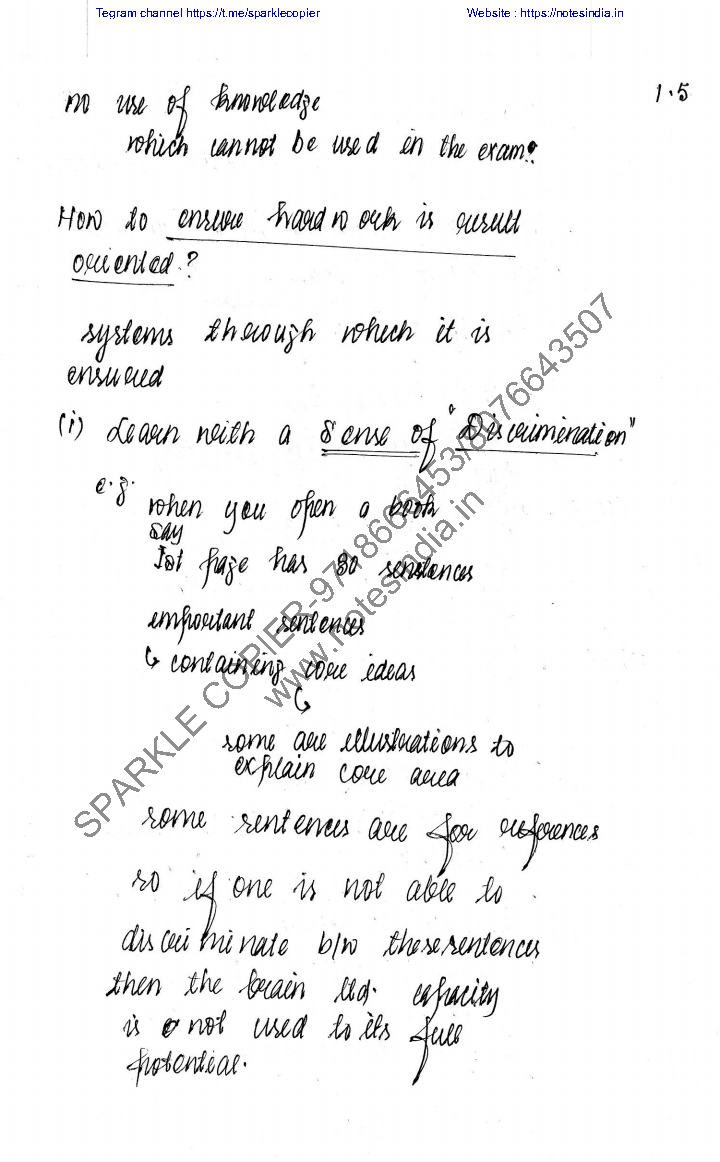 Tegram channel https://t.me/sparklecopier Website : https://notesindia.in
1.5
no use of knowledge
which cannot be used in the exam.
How to ensure hardwork is result
oriented.?
systems through which it is
ensured
(i) Learn with a Sense of "Discrimination"
e.g. when you open a book
say
Ist page has 30 sentences
important sentences
↳ containing core ideas
↳
some are illustrations to
explain core area
some sentences are for references
so if one is not able to
discriminate b/w these sentences
then the brain ltd. capacity
is not used to its full
potential.
SPARKLE COPIER-9718666453/8076643507
www.notesindia.in